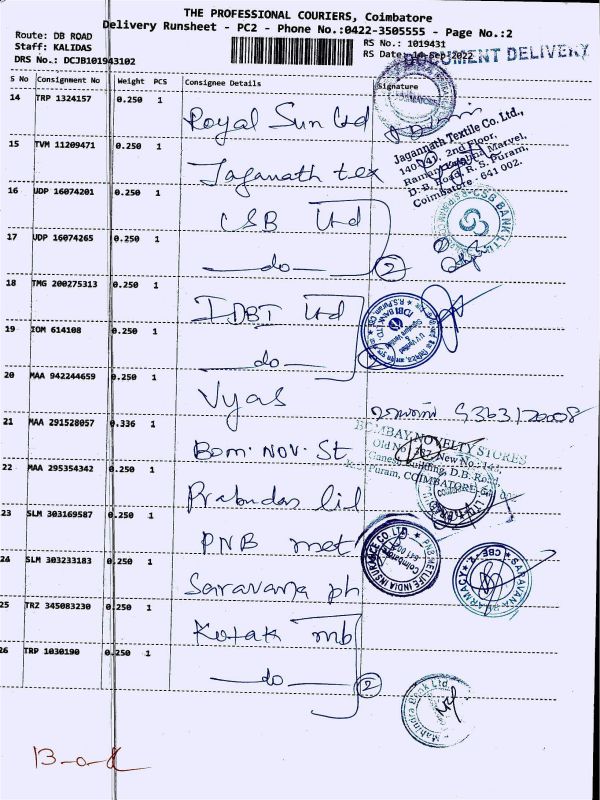 THE PROFESSIONAL COURIERS, Coimbatore
Delivery Runsheet - PC2 - Phone No.:0422-3505555 - Page No.:2
Route: DB ROAD
Staff: KALIDAS
DRS No.: DCJB101943102
RS No.: 1019431
RS Date: 14-Sep-2022
DOCUMENT DELIVERY
S No Consignment No Weight PCS Consignee Details Signature
14 TRP 1324157 0.250 1 Royal Sun Ltd
15 TVM 11209471 0.250 1 Jaganath tex
Jagannath Textile Co. Ltd.,
2nd Floor,
Marvel,
D. B. Road, R. S. Puram,
Coimbatore - 641 002.
16 UDP 16074201 0.250 1 CSB Ltd
CSB BANK LTD
17 UDP 16074265 0.250 1 do 2
18 TMG 200275313 0.250 1 IDBI Ltd
IDBI BANK LTD
19 IOM 614108 0.250 1 do
20 MAA 942244659 0.250 1 Vyas
21 MAA 291528057 0.336 1 Bom. NOV. St
BOMBAY NOVELTY STORES
Building, D.B. Road,
Puram, COIMBATORE
22 MAA 295354342 0.250 1 Prabudas lil
23 SLM 303169587 0.250 1 PNB met
PNB METLIFE INDIA INSURANCE CO LTD
24 SLM 303233183 0.250 1 Saravana ph
SARAVANA PHARMACY CBE
25 TRZ 345083230 0.250 1 Kotak mb
26 TRP 1030190 0.250 1 do 2
Mahindra Bank Ltd